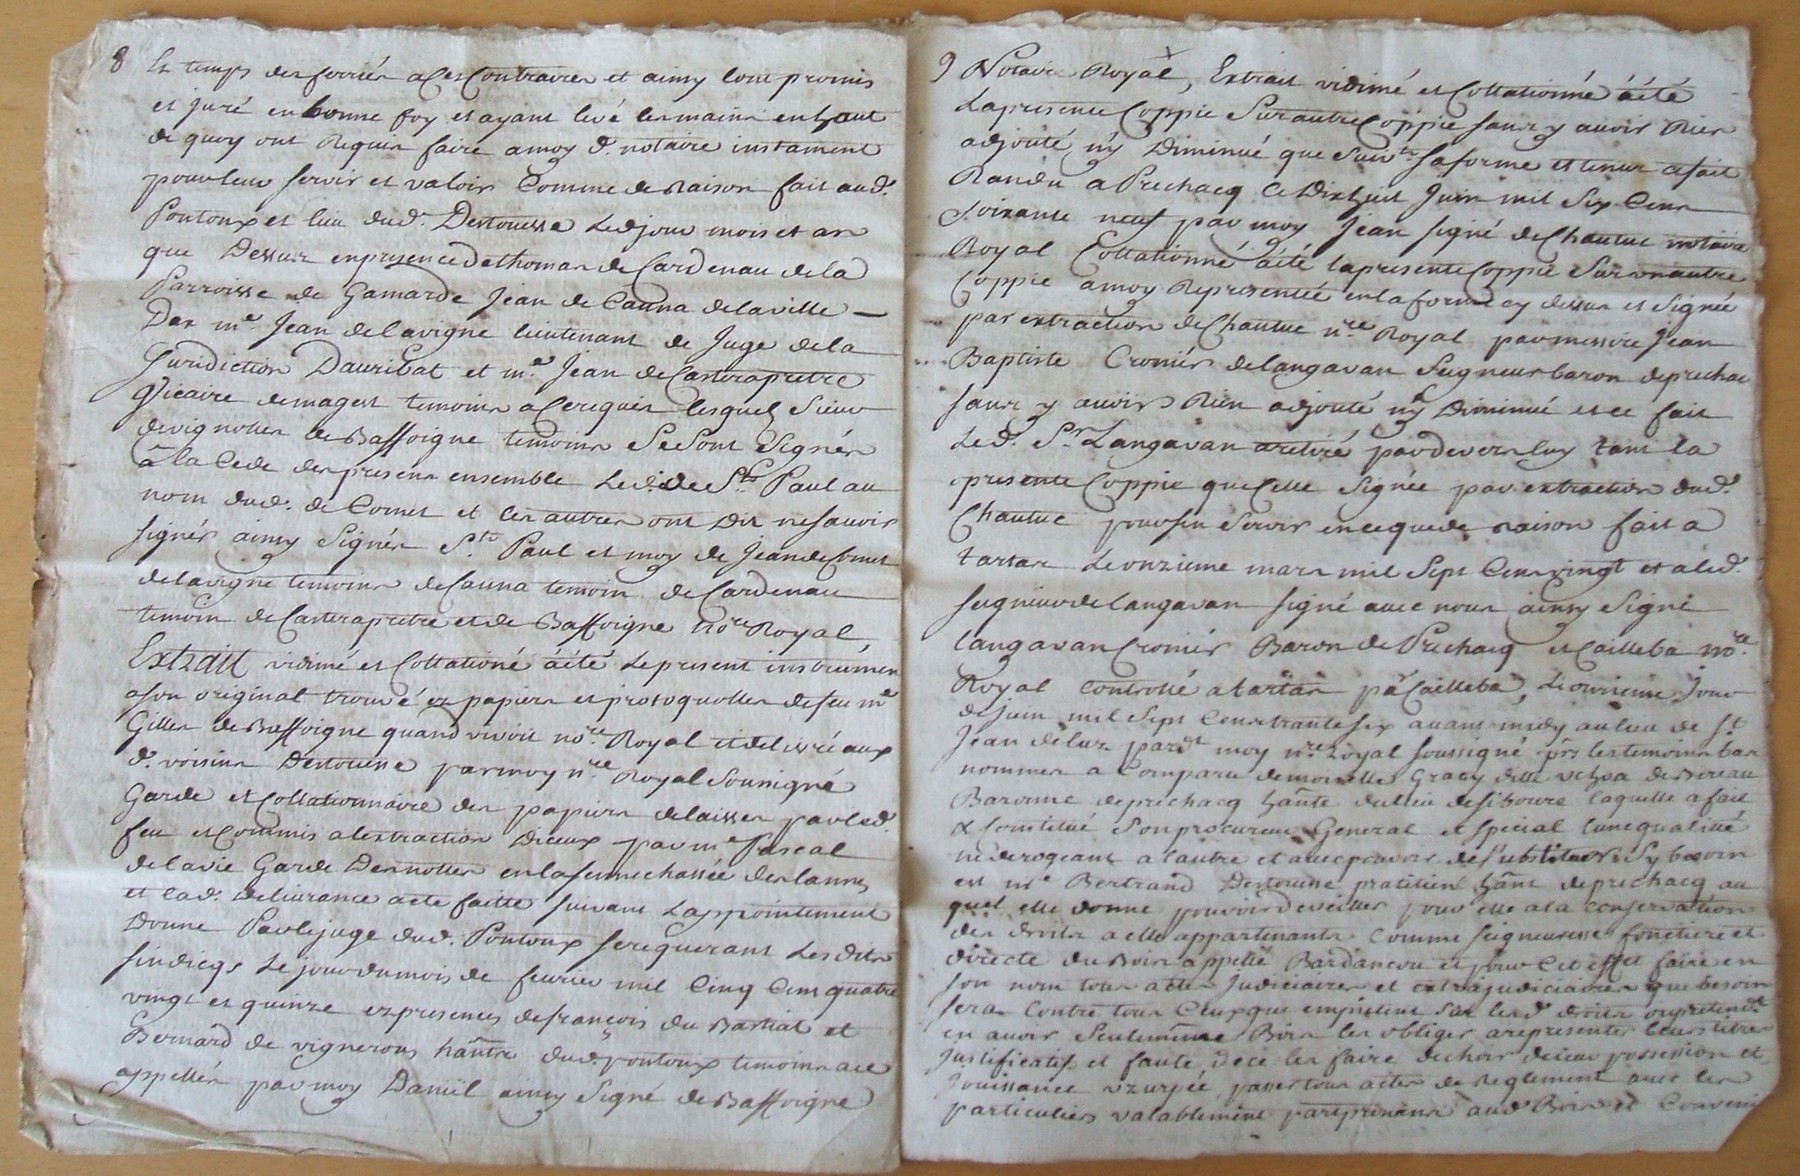 8
Et temps des ferriés a ces Contraires et ainsy l'ont promis
et juré en bonne foy et ayant levé les mains en haut
de quoy ont Requis faire a moy d. notaire instament
pour leur servir et valoir Comme de Raison fait aud.
Pontoux et lieu dud. Destouesse Led jour mois et an
que Dessus en presence de thomas de Cardenau de la
Parroisse de Gamarde Jean de Cauna de la ville
Dax me. Jean de lavigne lieutenant de Juge de la
Juridiction Dauribat et me. Jean de Casterapretre
Vicaire de magest temoins a ce requis lesquels Sieur
de vignolles de Baffoigne temoins Se Sont Signés
a la Cede des presens ensemble Led. de Ste Paul au
nom dud. de Comet et les autres ont Dit ne sauoir
signér ainsy Signés St. Paul et moy de Jean de Comet
de lavigne temoins de Cauna temoin de Cardenau
temoin de Casterapretre et de Baffoigne nore Royal
Extrait vidimé et Collationé a été Le present instrumen
a son original trouvé ez papiers et protoquolles de feu me
Gilles de Baffoigne quand vivoit nore Royal et delivré aux
d. voisins Destouesse par moy nre Royal Soussigné
Garde et Collationnaire des papiers delaissés par led.
feu et Commis a l'extraction Diceux par me Pascal
de lavie Garde Des nottes en la sennechassée des lannes
et lad. delivrance acte faitte suivant L'appointement
Donné Par le juge dud. Pontoux se requerant Les dits
sindicqs Le jour du mois de feurier mil Cinq Cens quatre
vingt et quinze ez presences de françois du Bartiat et
Bernard de vignerons hânts dud. pontoux temoins a ce
appellés par moy Daniel ainsy Signé de Baffoigne
9
Notaire Royal, Extrait vidimé et Collationné a été
La presente Coppie Sur autre Coppie sans y auoir Rien
adjouté n'y Diminué que Suivt. sa forme et teneur a fait
Randu a Prechacq Ce Dixhuit Juin mil Six Cens
Soixante neuf par moy Jean signé de Chauluc notaire
Royal Collationné a été la presente Coppie Sur un autre
Coppie a moy Representée en la forme cy dessus et Signée
par extraction de Chauluc nre Royal par messire Jean
Baptiste Croniér de Langavan Seigneur baron de prechac
sans y auoir Rien adjouté ny Diminué et ce fait
Led. Sr Langavan a retiré par devers luy tant la
presente Coppie que Celle Signée par extraction dud.
Chauluc pour s'en Servir en ce que de raison fait a
tartas Le onzieme mars mil Sept Cens vingt et a led.
seigneur de Langavan signé avec nous ainsy Signé
langavan Croniér Baron de Prechacq et Cailleba nore
Royal Controllé a tartas pr Cailleba, Le onzieme Jour
de juin mil Sept Cens trante six auant midy au lieu de St
Jean de luz pardt moy nre Royal soussigné prs les temoins bas
nommés a Comparu demoiselle Gracy dite de Bereau
Baronne de prechacq hante du lieu de sibourre laquelle a fait
& Constitué Son procureur General et special l'une qualitté
ne derogeant a l'autre et avec pouvoir de substituer sy besoin
est me Bertrand Destouesse pratitien hânt de prechacq au
quel elle donne pouvoir de veiller pour elle a la conservation
des droits a elle appartenants Comme seigneuresse fonciere et
directe du Bois appellé Bardancou et pour Cet effet faire en
son nom tous actes Judiciaires et extrajudiciaires que besoin
sera Contre tous Ceux qui empietent Sur les d. droits ou pretendt
en auoir Seulemême Bois les obliger a representer leurs titres
Justificatifs et faute de ce les faire dechoir de leur possession et
Jouissance uzurpée passer tous actes de Reglement avec les
particuliers valablement parprenans aud. Bois et Convenir